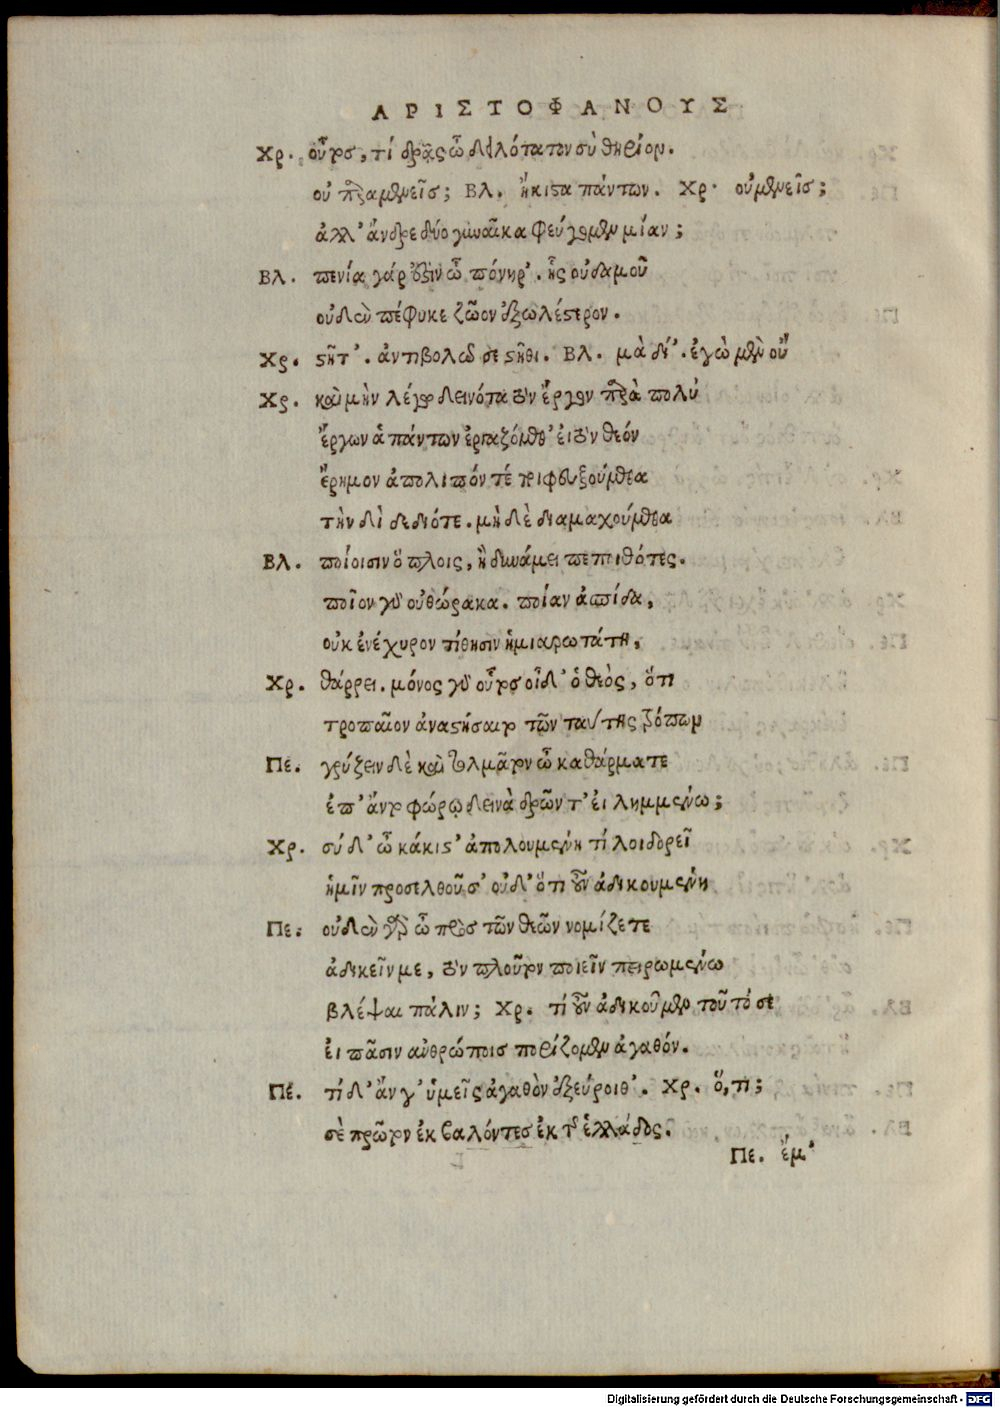 ΑΡΙΣΤΟΦΑΝΟΥΣ
Χρ. οὗτος, τί δρᾷς ὦ δειλότατον σὺ θηρίον.
οὐ παραμενεῖς; Βλ. ἥκιστα πάντων. Χρ. οὐ μενεῖς;
ἀλλ' ἄνδρε δύο γυναῖκα φεύγομεν μίαν;
Βλ. πενία γάρ ἐστιν ὦ πόνηρ'. ἧς οὐδαμοῦ
οὐδὲν πέφυκε ζῶον ἐξωλέστερον.
Χρ. στῆτ'. ἀντιβολῶ σε στῆθι. Βλ. μὰ δί'. ἐγὼ μὲν οὔ
Χρ. καὶ μὴν λέγω δεινότατον ἔργον παρὰ πολὺ
ἔργων ἁπάντων ἐργαζόμεθ' εἰ τὸν θεόν
ἔρημον ἀπολιπόντέ ποι φευξούμεθα
τὴν δὶ δεδιότε. μὴ δὲ διαμαχούμεθα
Βλ. ποίοισιν ὅπλοις, ἢ δυνάμει πεποιθότες.
ποῖον γὰρ οὐ θώρακα. ποίαν ἀσπίδα,
οὐκ ἐνέχυρον τίθησιν ἡ μιαρωτάτη,
Χρ. θάρρει. μόνος γὰρ οὗτος οἶδ' ὁ θεὸς, ὅτι
τροπαῖον ἀναστήσαιτο τῶν ταύτης τρόπων
Πε. γρύζειν δὲ καὶ τολμᾶτον ὦ καθάρματε
ἐπ' αὐτοφώρῳ δεινὰ δρῶντ' εἰλημμένω;
Χρ. σύ δ' ὦ κάκιστ' ἀπολουμένη τί λοιδορεῖ
ἡμῖν προσελθοῦσ' οὐδ' ὁτιοῦν ἀδικουμένη
Πε. οὐδὲν γὰρ ὦ πρὸς τῶν θεῶν νομίζετε
ἀδικεῖν με, τὸν πλοῦτον ποιεῖν πειρωμένω
βλέψαι πάλιν; Χρ. τί οὖν ἀδικοῦμεν τοῦτό σε
εἰ πᾶσιν ἀνθρώποισ πορίζομεν ἀγαθόν.
Πε. τί δ' ἄν γ' ὑμεῖς ἀγαθὸν ἐξεύροιθ'. Χρ. ὅ,τι;
σὲ πρῶτον ἐκβαλόντεσ ἐκ τῆς ἑλλάδος.
Πε. ἐμ'
Digitalisierung gefördert durch die Deutsche Forschungsgemeinschaft - DFG